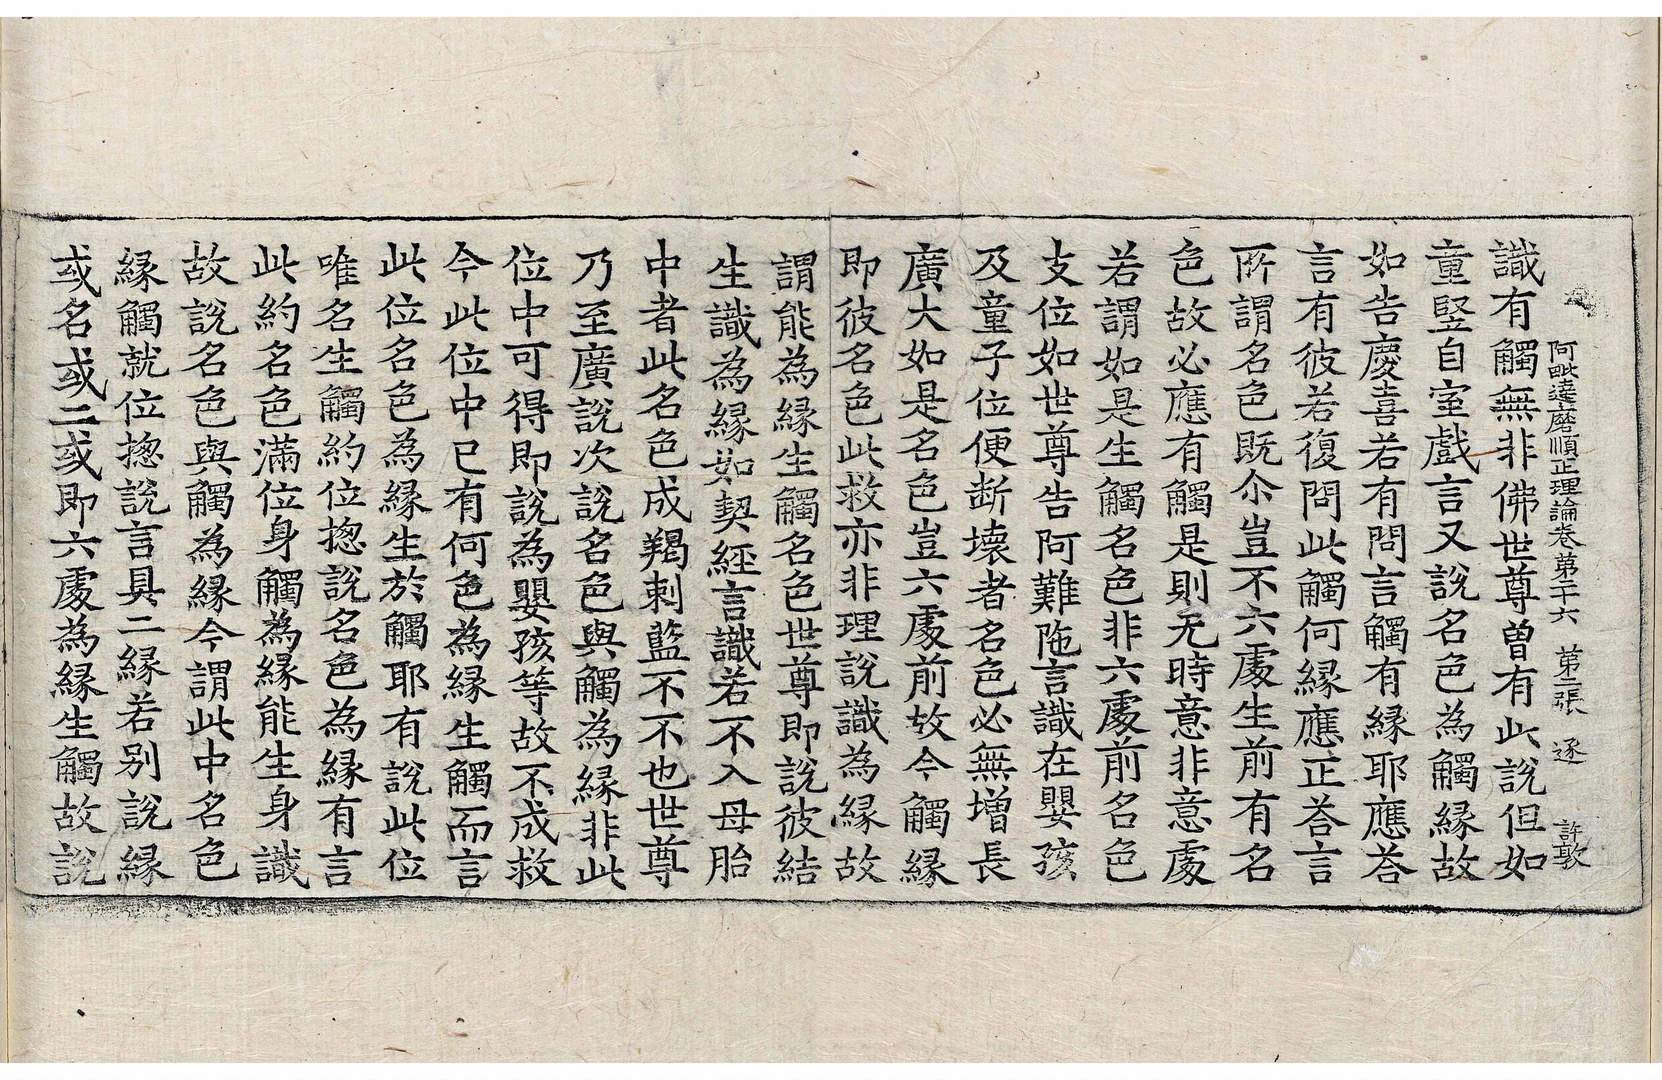 阿毗達磨順正理論卷第二十六 第二張 逐 許敦
識有觸無非佛世尊曽有此說但如
童竪自室戲言又說名色為觸縁故
如告慶喜若有問言觸有縁耶應荅
言有彼若復問此觸何縁應正荅言
所謂名色既尒豈不六處生前有名
色故必應有觸是則无時意非意處
若謂如是生觸名色非六處前名色
支位如世尊告阿難陁言識在嬰孩
及童子位便断壊者名色必無增長
廣大如是名色豈六處前故今觸縁
即彼名色此救亦非理說識為縁故
謂能為縁生觸名色世尊即說彼結
生識為縁如契經言識若不入母胎
中者此名色成羯剌藍不不也世尊
乃至廣說次說名色與觸為縁非此
位中可得即說為嬰孩等故不成救
今此位中已有何色為縁生觸而言
此位名色為縁生於觸耶有說此位
唯名生觸約位揔說名色為縁有言
此約名色滿位身觸為縁能生身識
故說名色與觸為縁今謂此中名色
縁觸就位揔說言具二縁若別說縁
或名或二或即六處為縁生觸故說